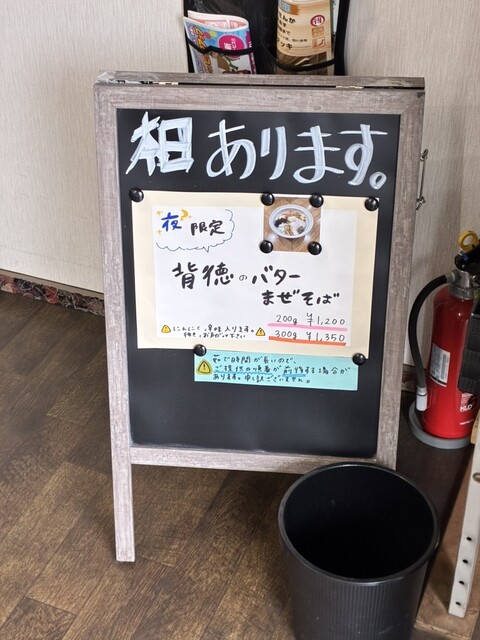 あります。
夜
限定
背徳のバター
まぜそば
200g ¥1,200
300g ¥1,350
にんにく、辛味入ります。
茹で時間が長いので、
ご提供の順番が前後する場合が
あります。申し訳ございません。